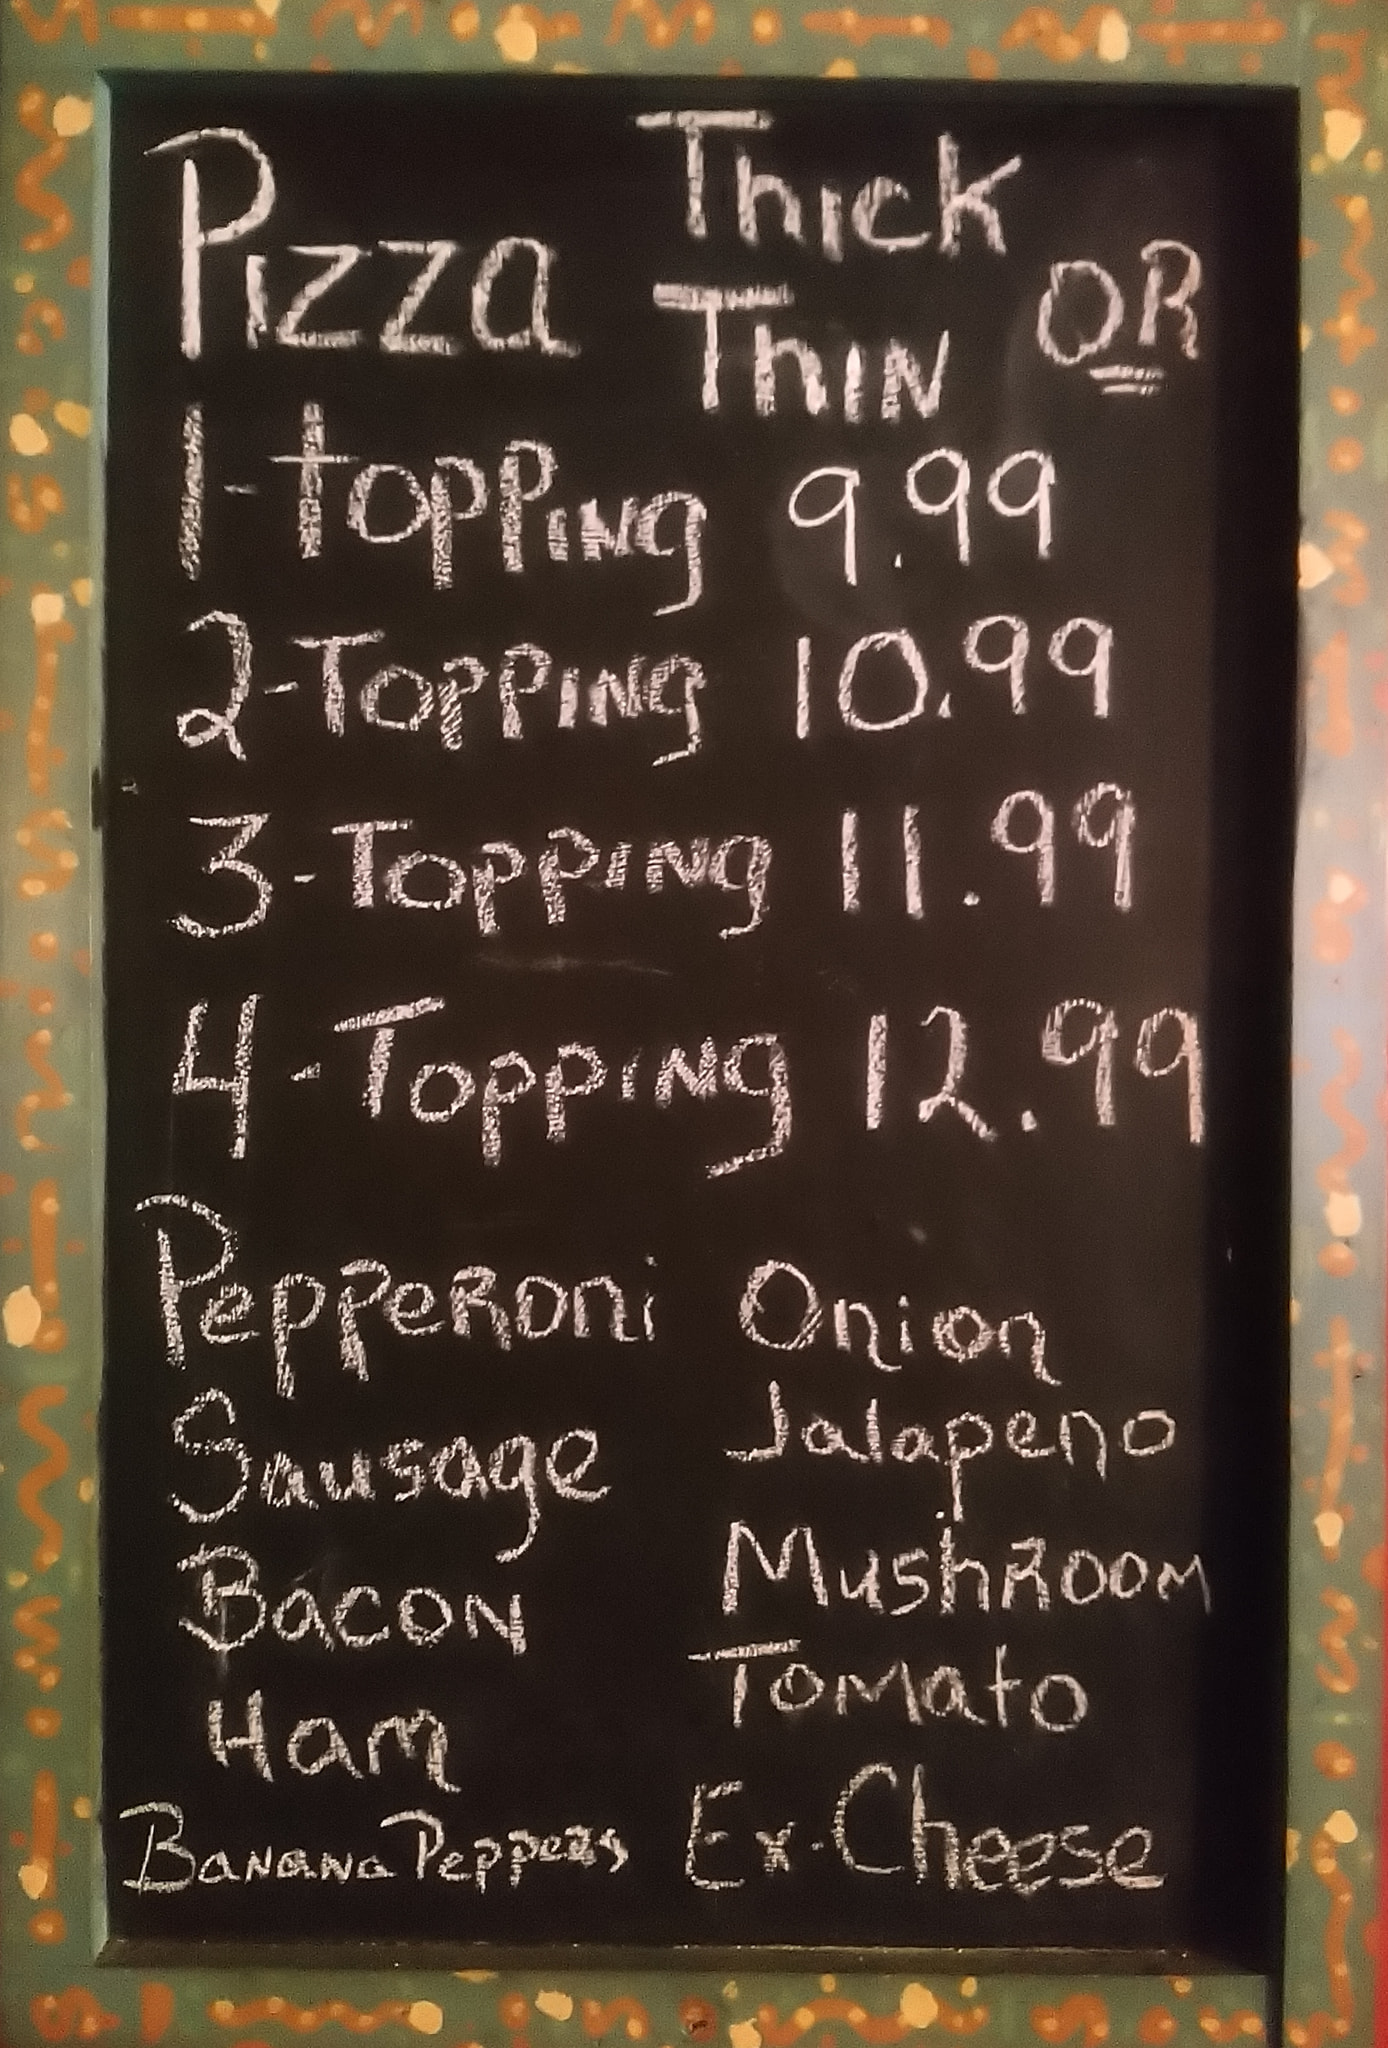 Pizza Thick OR Thin
1-topping 9.99
2-Topping 10.99
3-Topping 11.99
4-Topping 12.99
Pepperoni Onion
Sausage Jalapeno
Bacon Mushroom
Ham Tomato
Banana Peppers Ex-Cheese